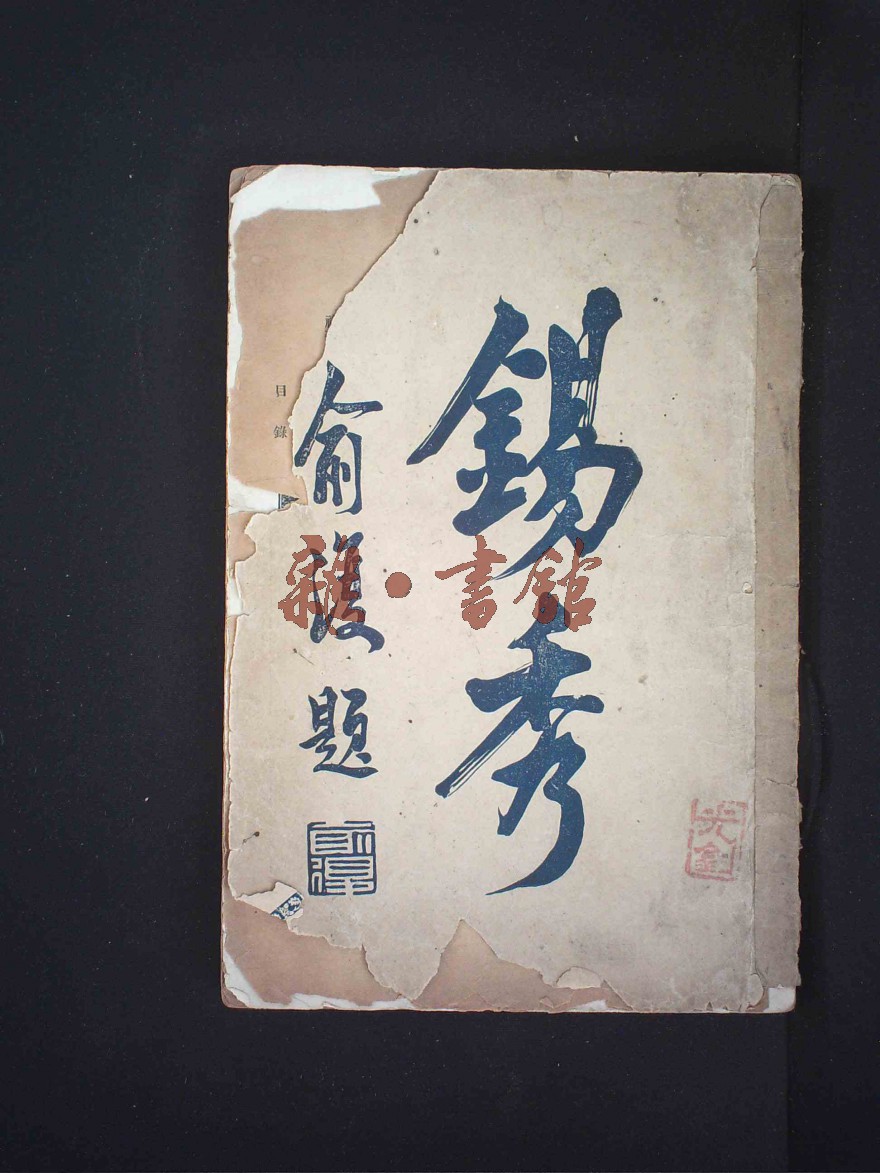 錫秀
俞復題
目錄
雜·書館